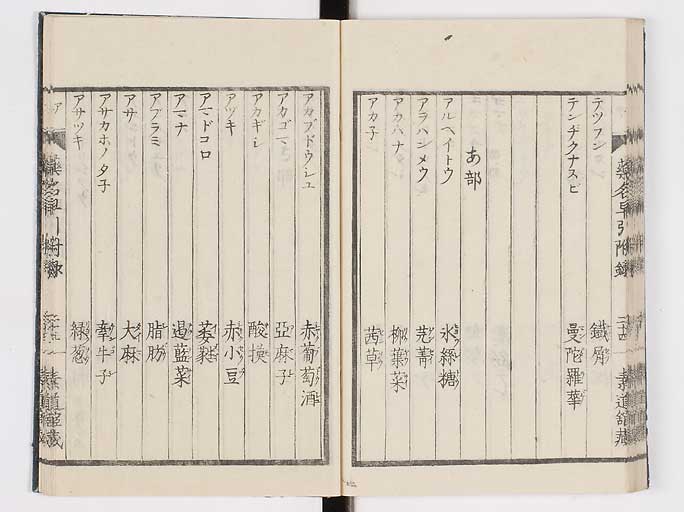 テツフン 鐵屑
テンヂクナスビ 曼陀羅華
あ部
アルヘイトウ 氷糖
アラハンメウ 芫菁
アカハナ 柳葉菜
アカ子 茜草
アカブドウシュ 赤葡萄酒
アカゴマ 亞麻子
アカギ 酸模
アヅキ 赤小豆
アマドコロ 萎蕤
アマナ 遏藍菜
アブラミ 脂肪
アサ 大麻
アサカホノタ子 牽牛子
アサツキ 緑葱
薬名早引附録 二十四 素道館蔵
薬名早引附録 二十五 素道館蔵